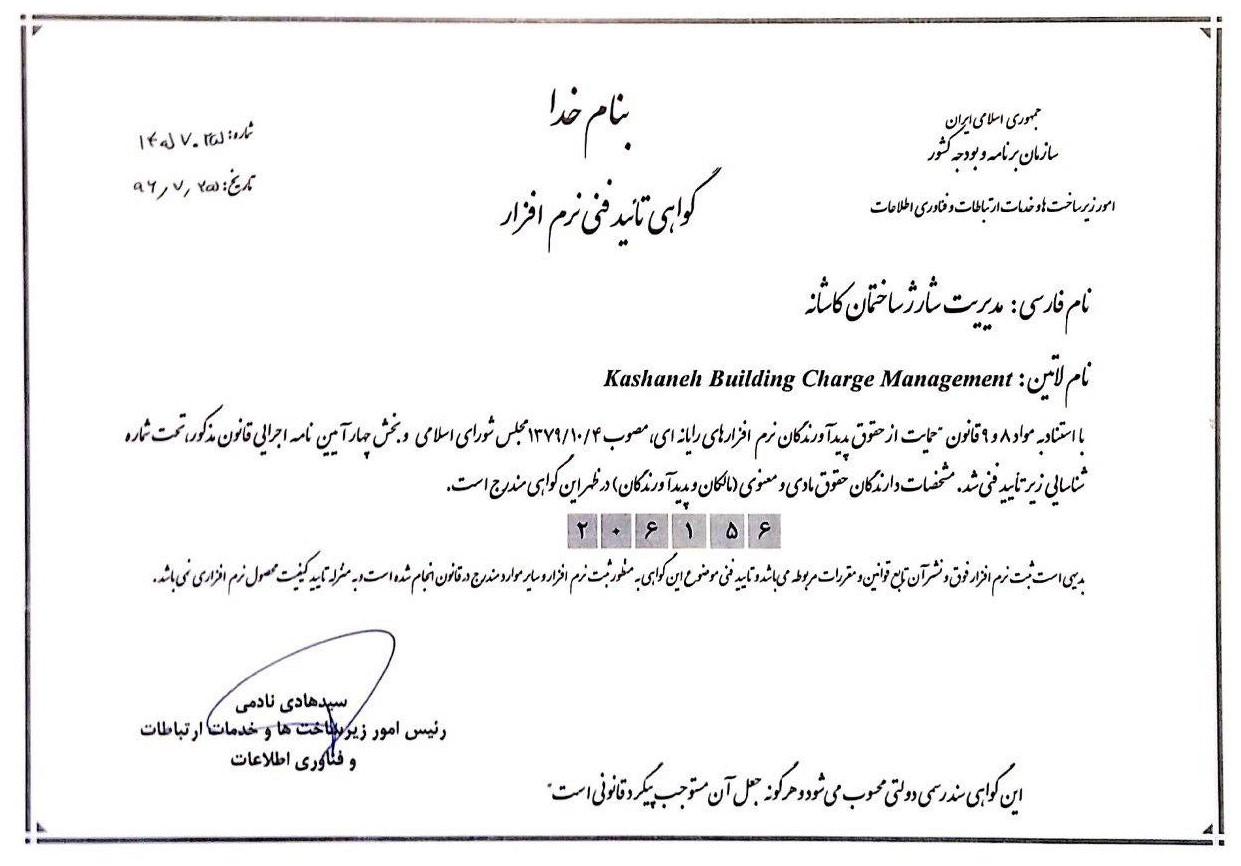 بنام خدا
جمهوری اسلامی ایران
سازمان برنامه و بودجه کشور
امور زیرساخت ها و خدمات ارتباطات و فناوری اطلاعات
شماره:
تاریخ: ۹۶/۷/۲۵
گواهی تائید فنی نرم افزار
نام فارسی: مدیریت شارژ ساختمان کاشانه
نام لاتین: Kashaneh Building Charge Management
با استناد به مواد ۸ و ۹ قانون "حمایت از حقوق پدیدآورندگان نرم افزارهای رایانه ای، مصوب ۱۳۷۹/۱۰/۴ مجلس شورای اسلامی و بخش چهار آیین نامه اجرایی قانون مذکور، تحت شماره
شناسایی زیر تأیید فنی شد. مشخصات دارندگان حقوق مادی و معنوی (مالکان و پدیدآورندگان) در ظهر این گواهی مندرج است.
۲۰۶۱۵۶
بدیهی است ثبت نرم افزار فوق و نشر آن تابع قوانین و مقررات مربوطه می باشد و تایید فنی موضوع این گواهی به منظور ثبت نرم افزار و سایر موارد مندرج در قانون انجام شده است و به منزله تایید کیفیت محصول نرم افزاری نمی باشد.
سیدهادی نادمی
رئیس امور زیرساخت ها و خدمات ارتباطات
و فناوری اطلاعات
این گواهی سند رسمی دولتی محسوب می شود و هرگونه جعل آن مستوجب پیگرد قانونی است"